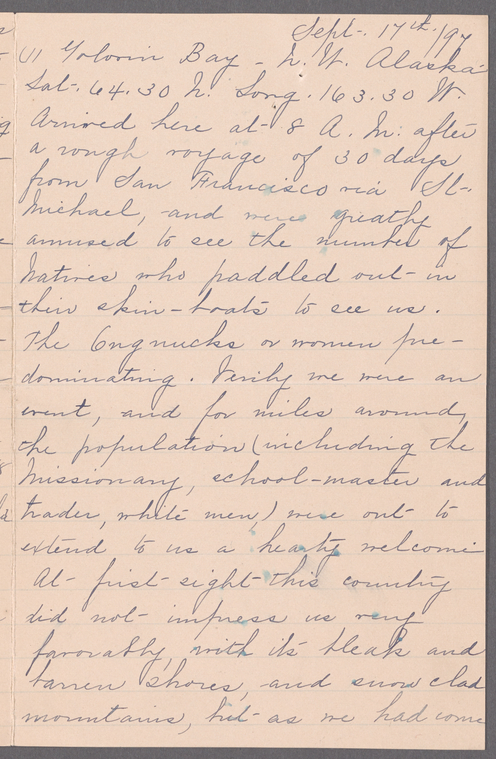 Sept. 17th /97
Golovin Bay - N. W. Alaska
Lat. 64.30 N. Long. 163.30 W.
Arrived here at 8 A. M. after
a rough voyage of 30 days
from San Francisco via St.
Michael, and were greatly
amused to see the number of
Natives who paddled out in
their skin-boats to see us.
The Ongnucks or women pre-
dominating. Verily we were an
event, and for miles around,
the population (including the
Missionary, school-master and
trader, white men,) were out to
extend to us a hearty welcome
At first sight this country
did not impress us very
favorably, with its bleak and
barren shores, and snow clad
mountains, but as we had come